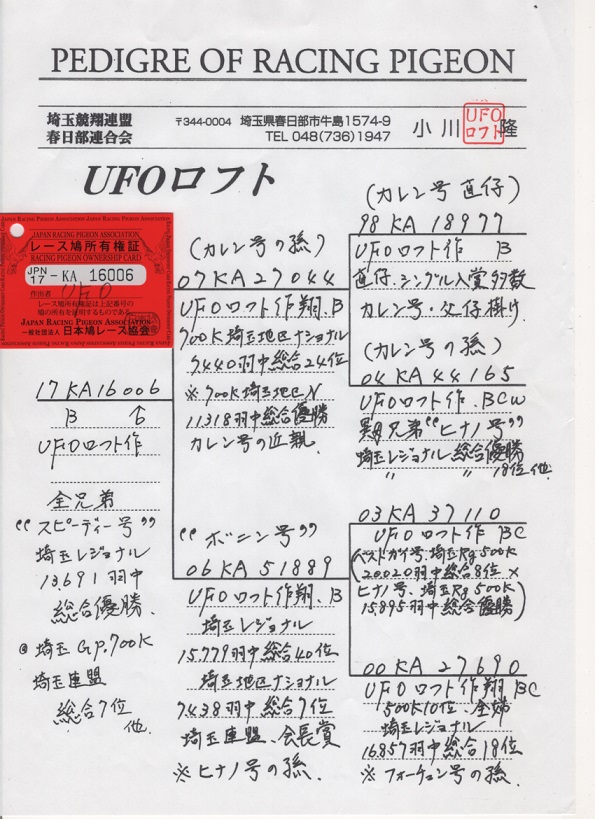 PEDIGRE OF RACING PIGEON
埼玉競翔連盟
春日部連合会
〒344-0004 埼玉県春日部市牛島1574-9
TEL 048(736)1947
小川 隆
UFO
ロフト
UFOロフト
JAPAN RACING PIGEON ASSOCIATION
レース鳩所有権証
RACING PIGEON OWNERSHIP CARD
JPN
17 -KA 16006
作出者 UFO
レース鳩所有権証は上記番号の
鳩の所有を証明するものである
JAPAN RACING PIGEON ASSOCIATION
一般社団法人 日本鳩レース協会
17KA16006
B ♂
UFOロフト作
全兄弟
“スピーディー号”
埼玉レジョナル
13.691羽中
総合優勝.
埼玉G.P.700K
埼玉連盟
総合7位
他.
(カレン号の孫)
07KA27044
UFOロフト作翔.B
700K埼玉地区ナショナル
9440羽中総合24位
※700K埼玉地区N
11318羽中総合優勝
カレン号の近親.
“ボニン号”
06KA51889
UFOロフト作翔.B
埼玉レジョナル
15.779羽中総合40位
埼玉地区ナショナル
7.438羽中総合7位
埼玉連盟、会長賞
※ヒナノ号の孫.
(カレン号 直仔)
98KA18977
UFOロフト作 B
直仔.シングル入賞多数
カレン号・父仔掛け.
(カレン号の孫)
04KA44165
UFOロフト作.BCW
異母兄弟“ヒナノ号”
埼玉レジョナル総合優勝
〃 〃 18位他.
03KA37110
UFOロフト作 BC
(ベストガイ号.埼玉Rg500K
20.020羽中総合8位×
ヒナノ号、埼玉Rg500K
15.895羽中総合優勝)
00KA27690
UFOロフト作翔BC
500K10位.
埼玉レジョナル
16.857羽中総合18位
※フォーチュン号の孫.